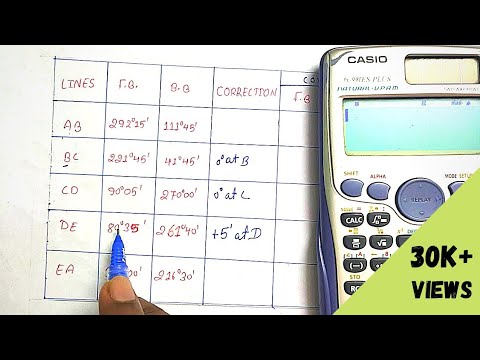 LINES F.B. B.B CORRECTION F.B
AB 292°15' 111°45'
BC 221°45' 41°45' 0° at B
CD 90°05' 270°00' 0° at C
DE 261°40' +5' at D
EA 216°30'
CASIO
fx-991ES PLUS
NATURAL-V.P.A.M.
SHIFT ALPHA MODE SETUP
REPLAY
CALC
30K+
VIEWS